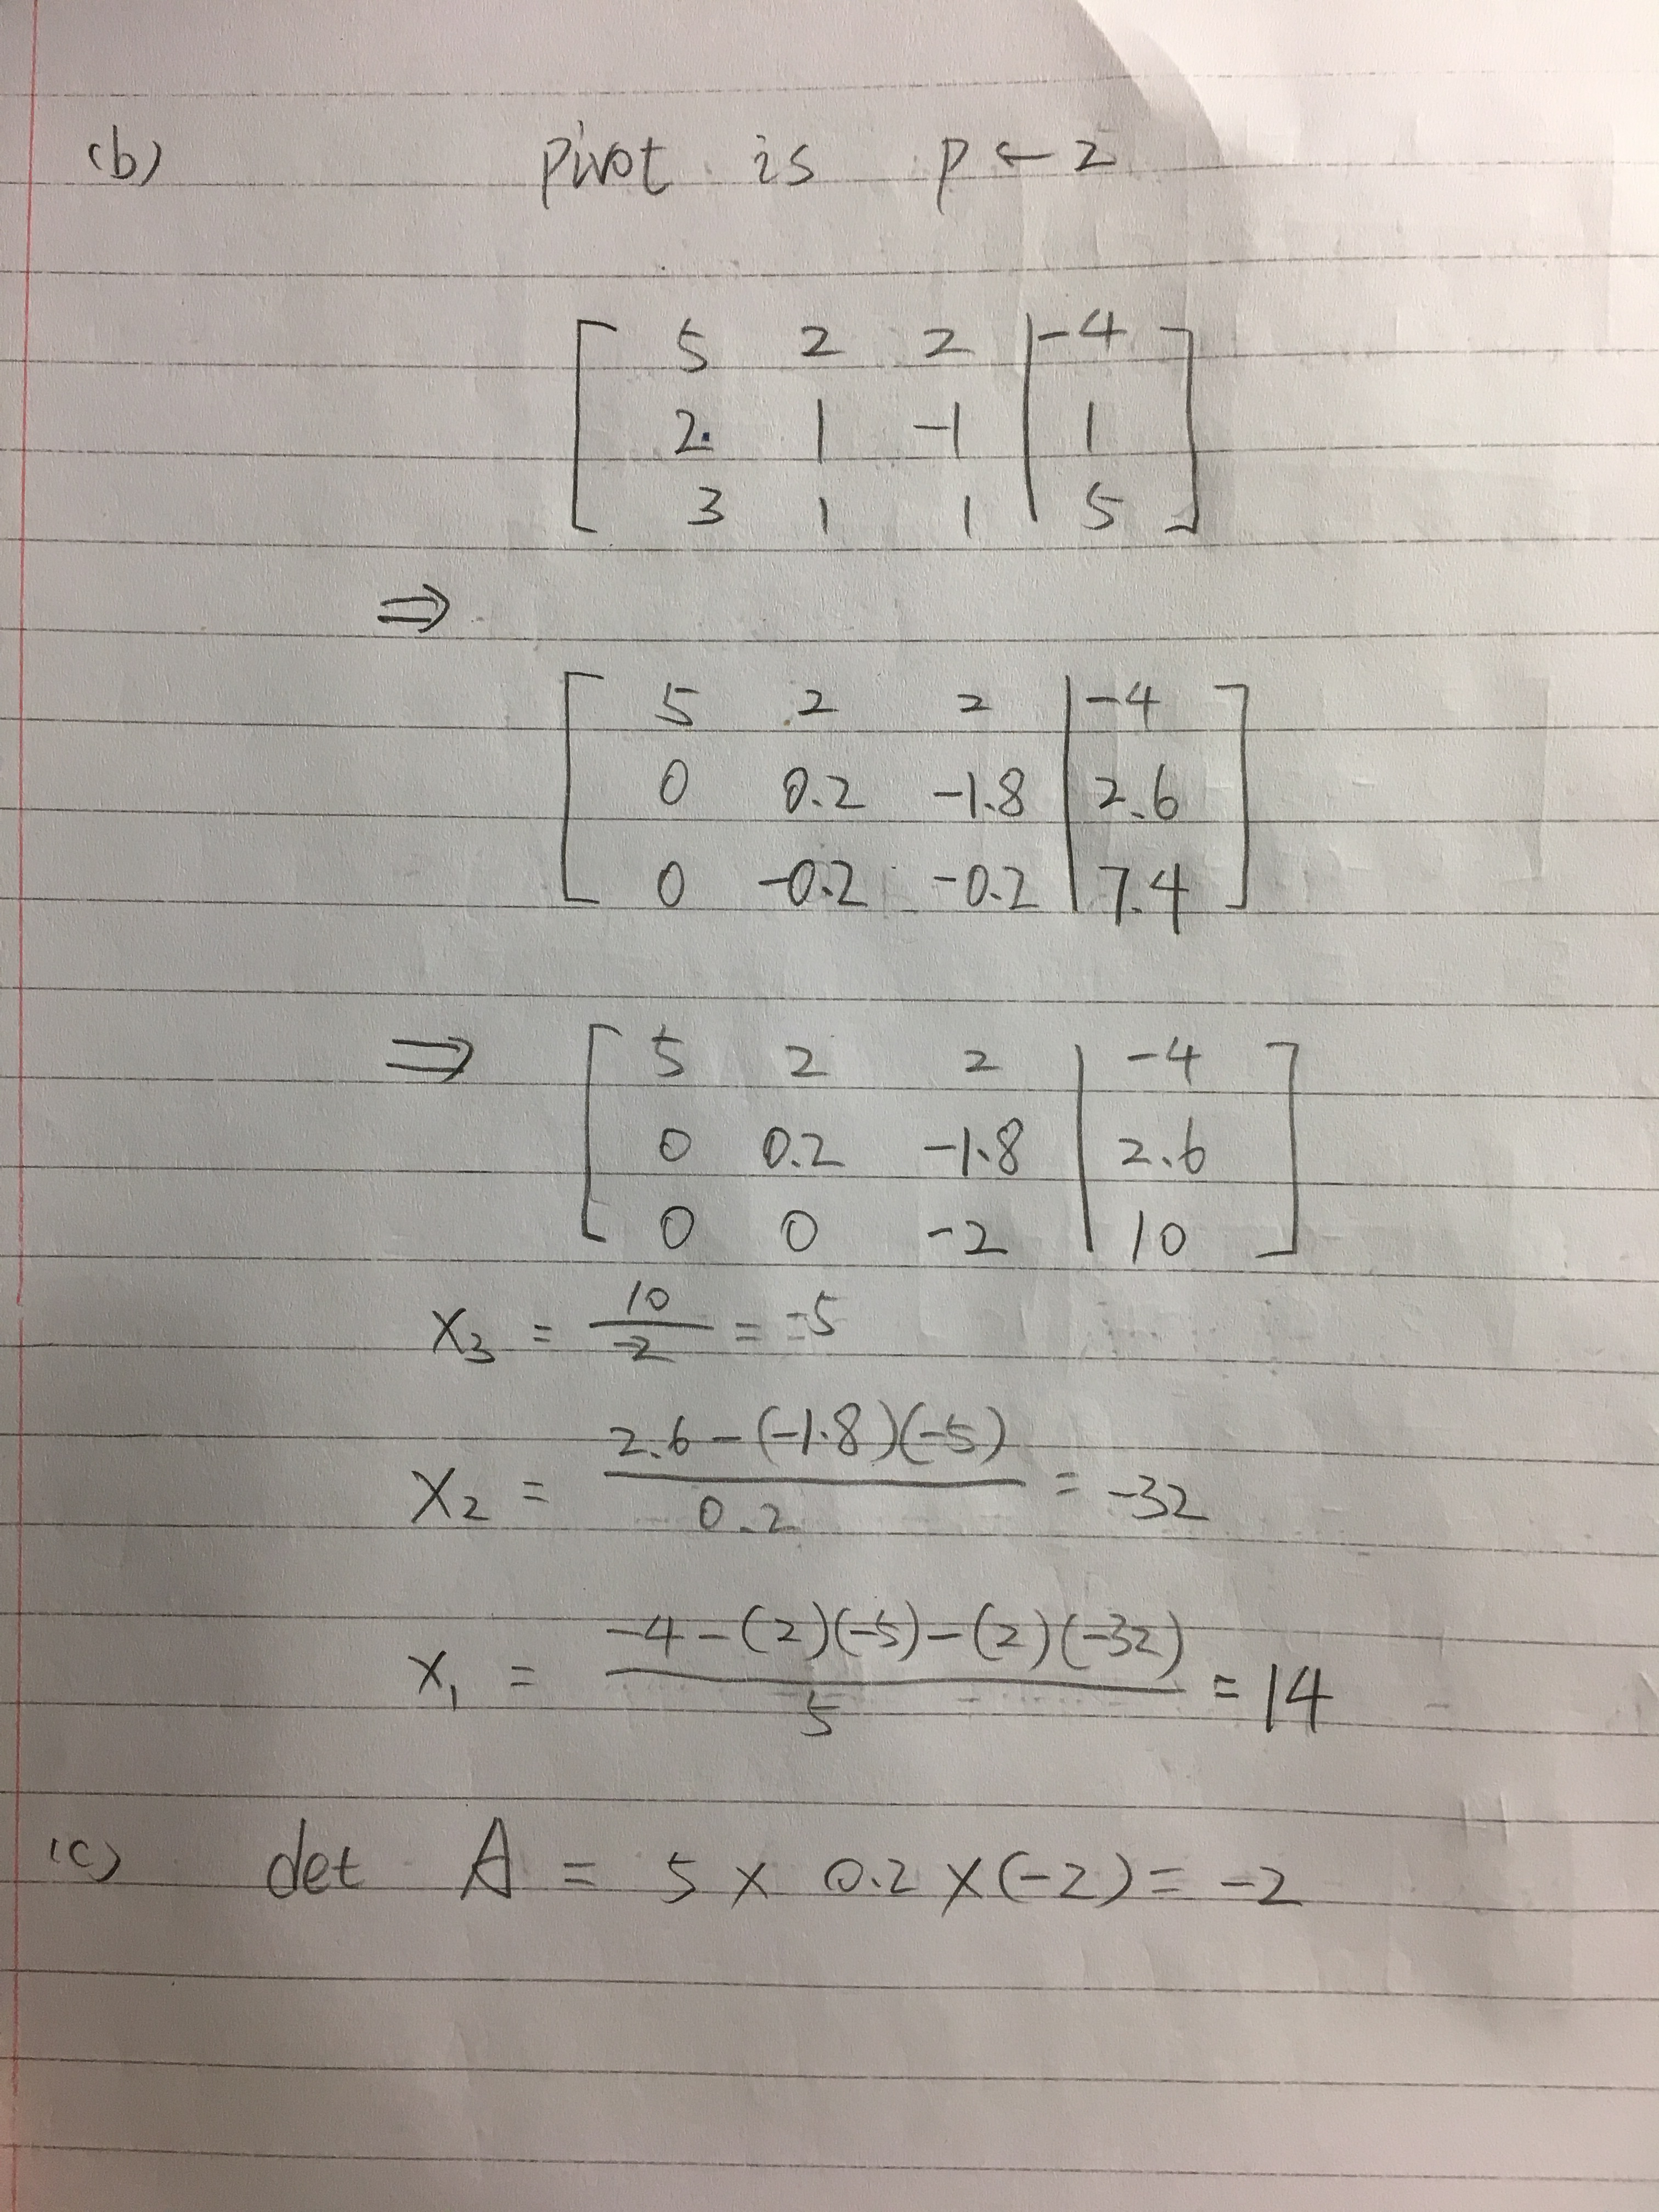 (b) pivot is p ← 2
[ 5 2 2 | -4 ]
[ 2 1 -1 | 1 ]
[ 3 1 1 | 5 ]
⇒
[ 5 2 2 | -4 ]
[ 0 0.2 -1.8 | 2.6 ]
[ 0 -0.2 -0.2 | 7.4 ]
⇒ [ 5 2 2 | -4 ]
[ 0 0.2 -1.8 | 2.6 ]
[ 0 0 -2 | 10 ]
x₃ = 10/-2 = -5
x₂ = 2.6-(-1.8)(-5)/0.2 = -32
x₁ = -4-(2)(-5)-(2)(-32)/5 = 14
(c) det A = 5 × 0.2 × (-2) = -2